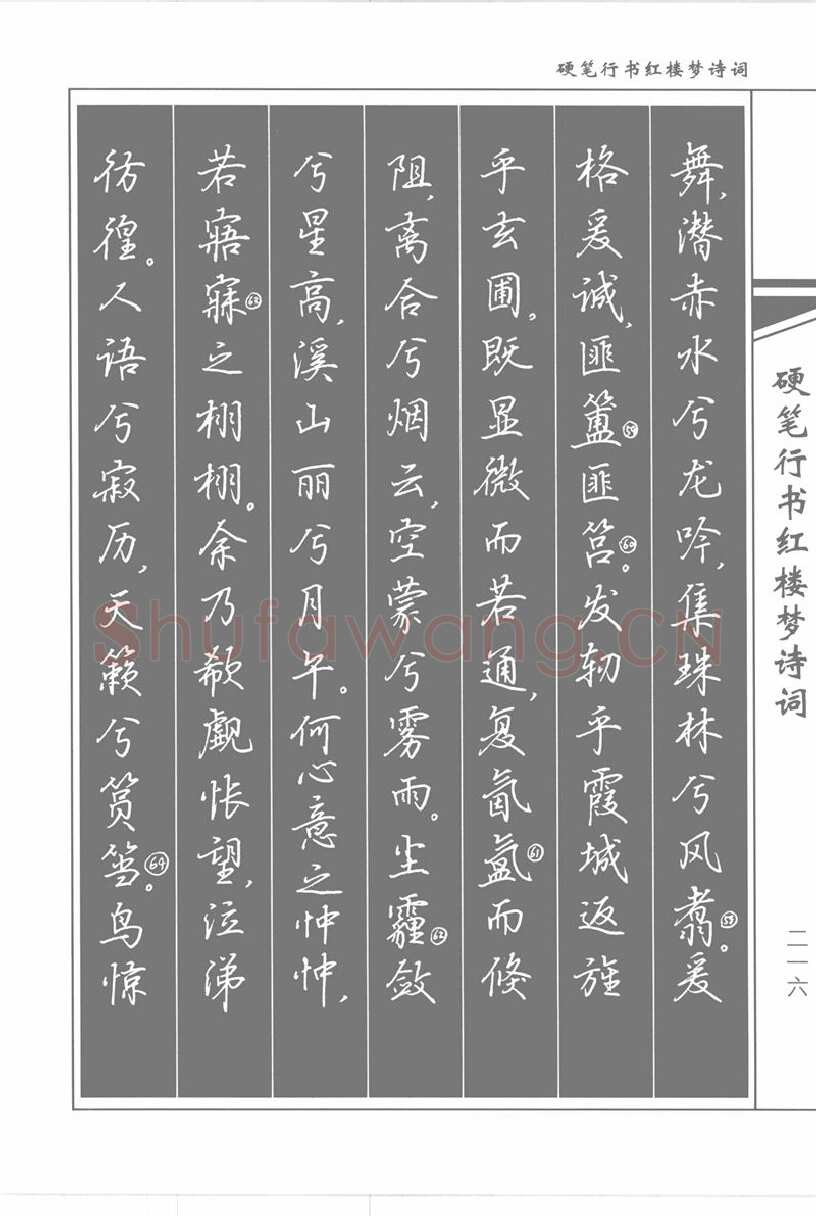 硬笔行书红楼梦诗词
舞,潜赤水兮龙吟,集珠林兮风翥㊳。爰
格爰诚,匪簠㊾匪筥㊿。发轫乎霞城返旌
乎玄圃。既显微而若通,复氤氲61而倏
阻,离合兮烟云,空蒙兮雾雨。尘霾62敛
兮星高,溪山丽兮月午。何心意之忡忡,
若寤寐63之栩栩。余乃欷歔怅望,泣涕
彷徨。人语兮寂历,天籁兮筼筜64。鸟惊
硬笔行书红楼梦诗词
二一六
Shufawang.CN